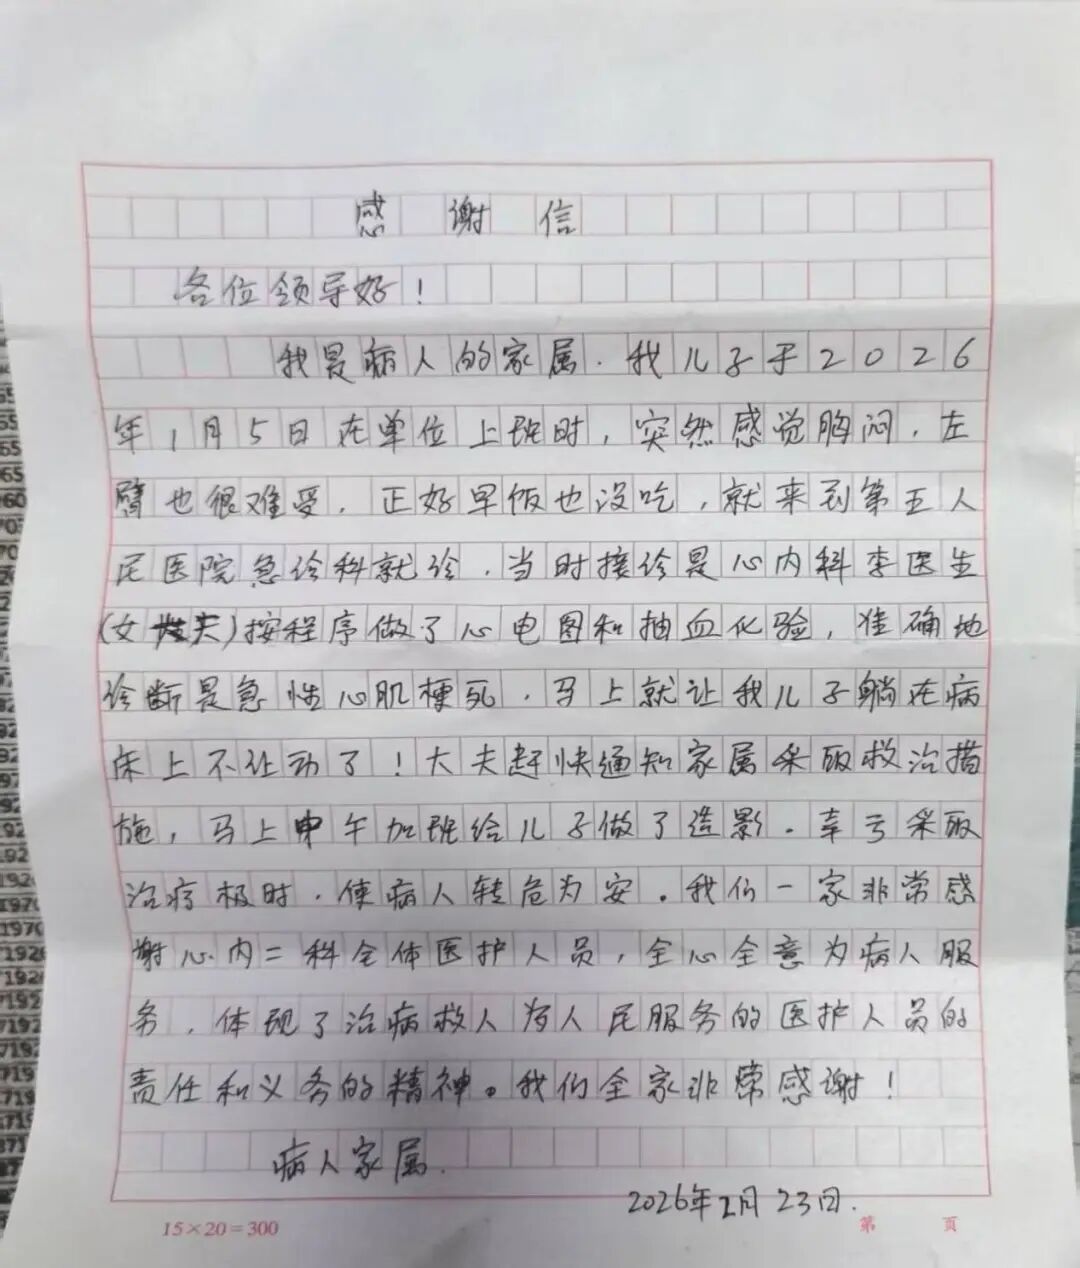 感谢信
各位领导好!
我是病人的家属.我儿子于2026
年1月5日在单位上班时,突然感觉胸闷,左
臂也很难受.正好早饭也没吃,就来到第五人
民医院急诊科就诊.当时接诊是心内科李医生
(女大夫)按程序做了心电图和抽血化验,准确地
诊断是急性心肌梗死.马上就让我儿子躺在病
床上不让动了!大夫赶快通知家属采取救治措
施,马上中午加班给儿子做了造影.幸亏采取
治疗极时.使病人转危为安。我们一家非常感
谢心内二科全体医护人员,全心全意为病人服
务.体现了治病救人为人民服务的医护人员的
责任和义务的精神。我们全家非常感谢!
病人家属.
2026年2月23日.
15×20=300
第 页